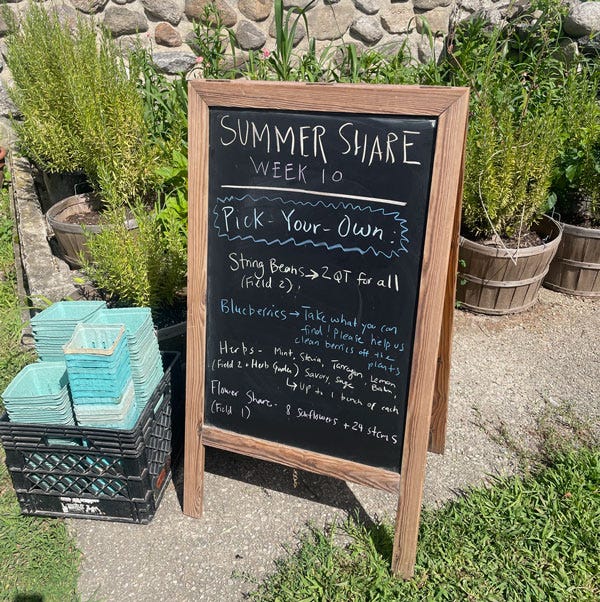 SUMMER SHARE
WEEK 10
Pick-Your-Own:
String Beans → 2 QT for all
(Field 2)
Blueberries → Take what you can
find! Please help us
clean berries off the
plants
Herbs - Mint, Stevia, Tarragon, Lemon
(Field 2 + Herb Garden) Savory, Sage, Balm,
↳ Up to 1 bunch of each
Flower Share - 8 sunflowers + 24 stems
(Field 1)